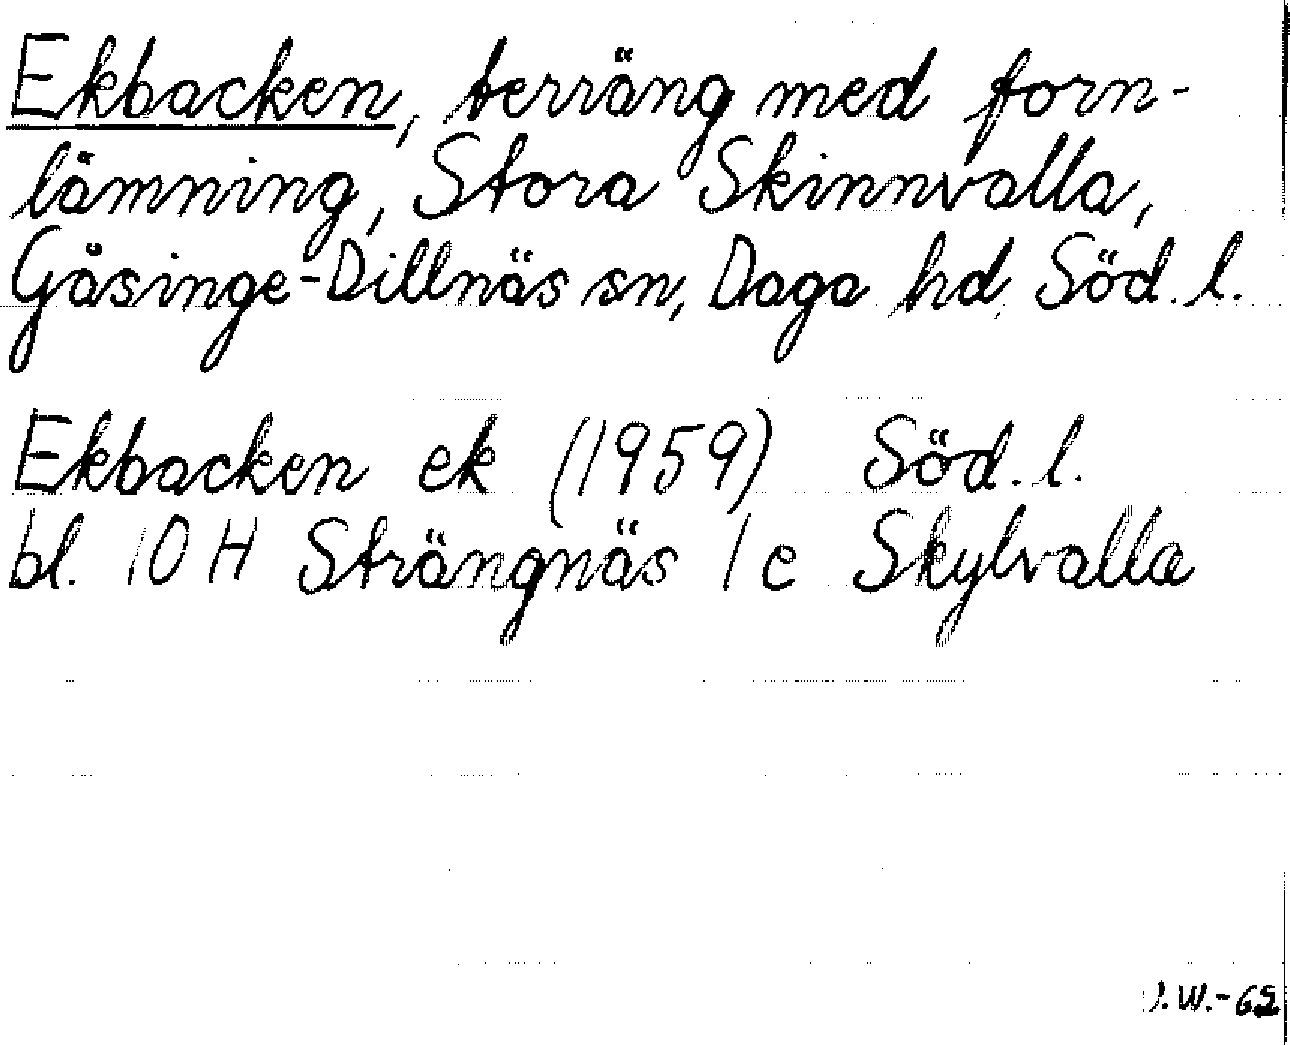 Ekbacken, terräng med forn-
lämning, Stora Skinnvalla,
Gåsinge-Dillnäs sn, Daga hd, Söd. l.
Ekbacken ek (1959) Söd. l.
bl. 10 H Strängnäs 1 e Skylvalla